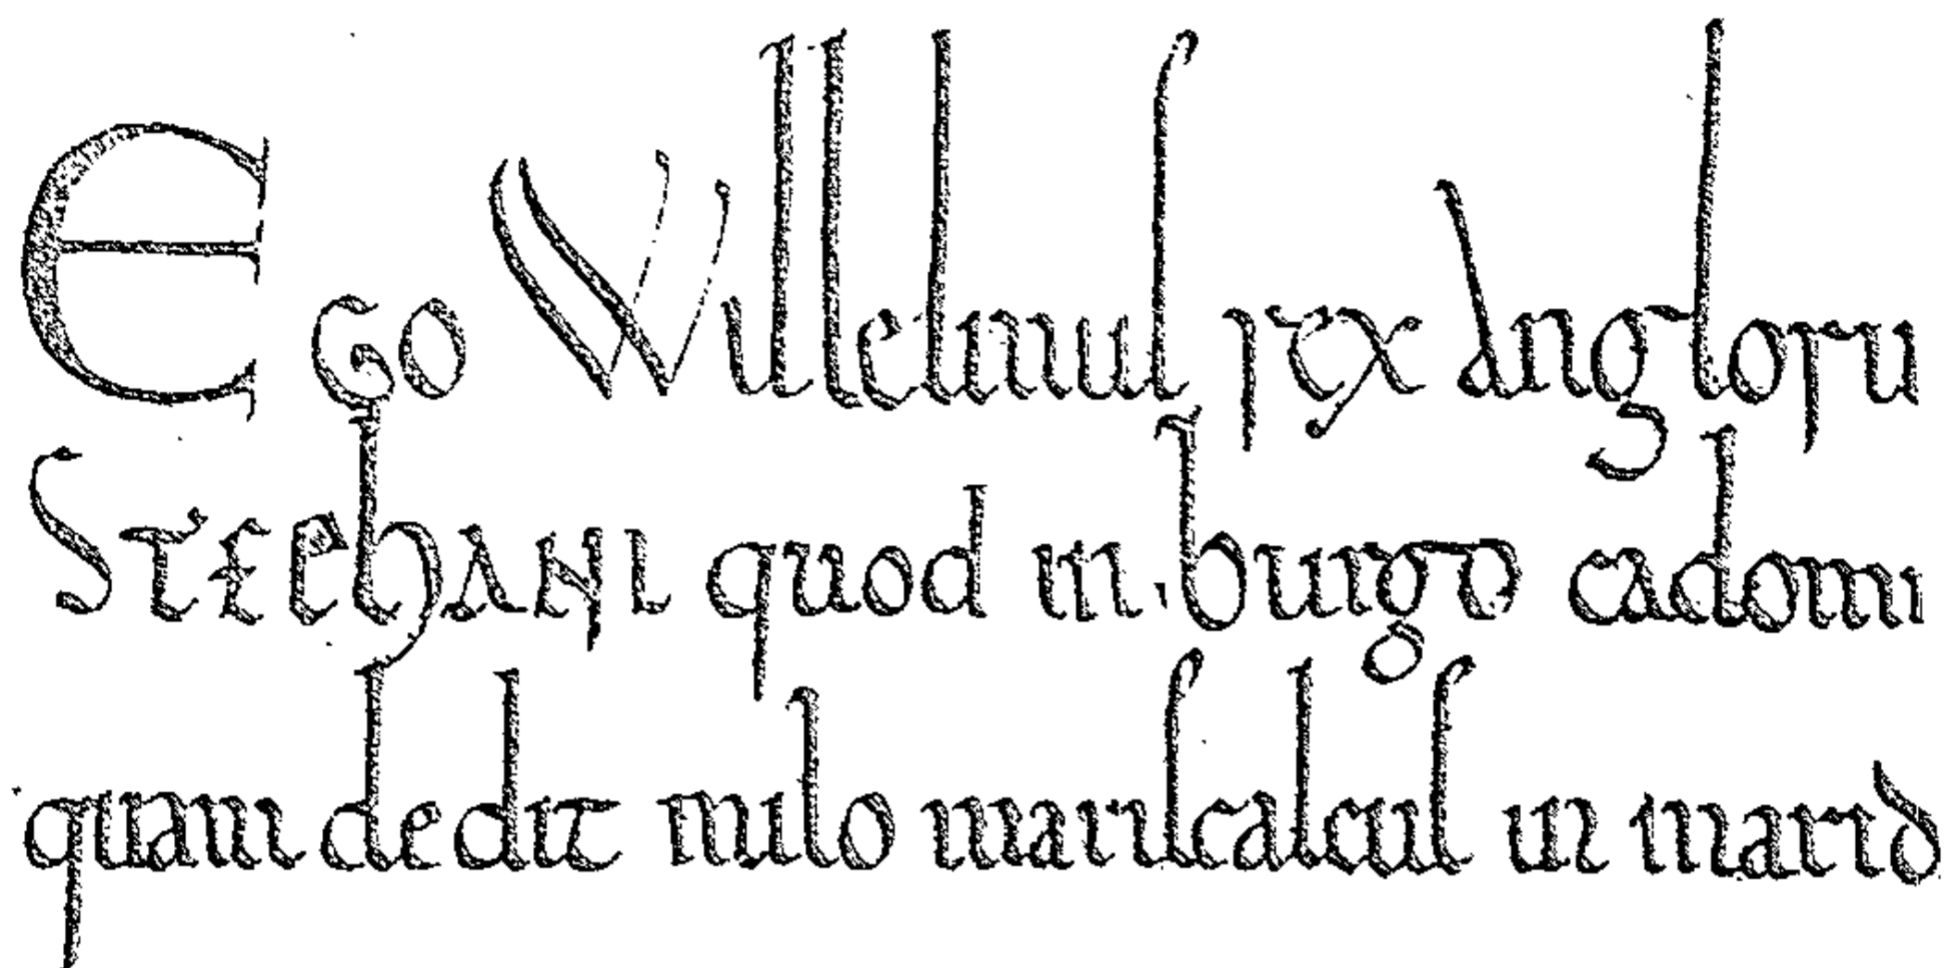 Ego Willelmus rex Angloru
STEPhANI quod in burgo cadomi
quam dedit milo mariscalcus in marid